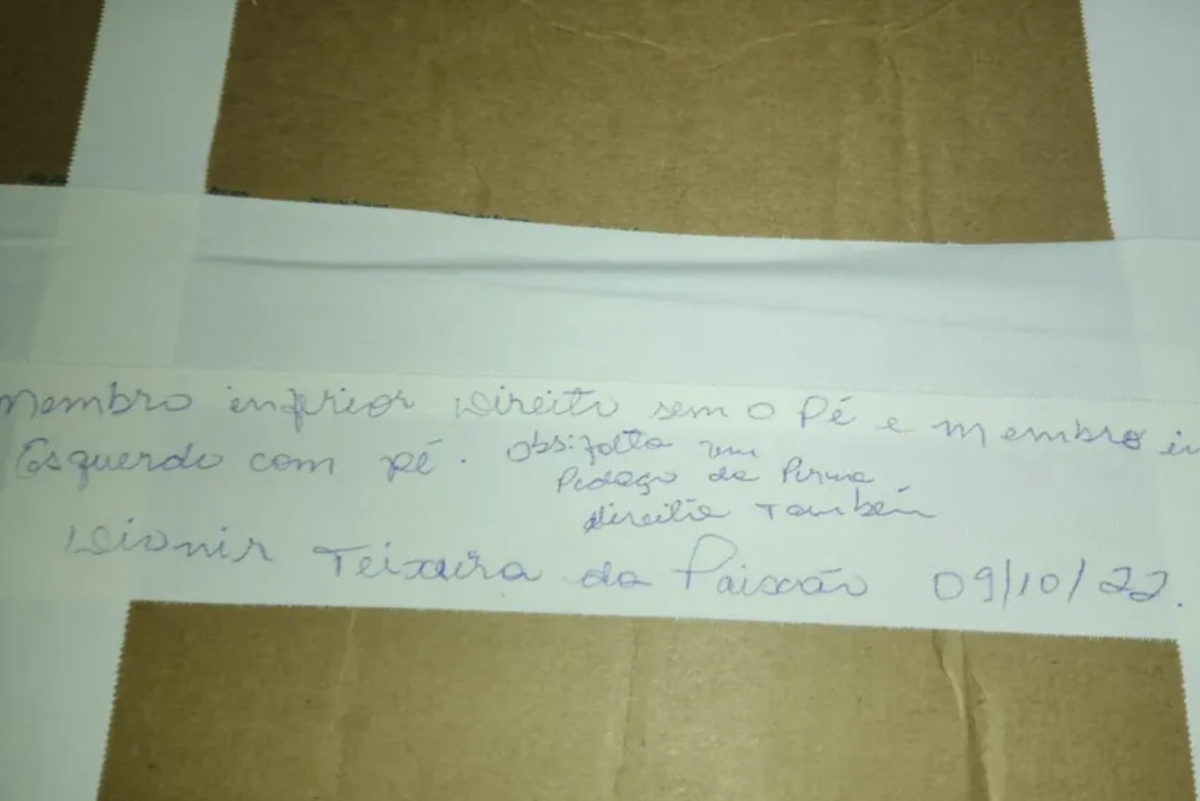 Membro inferior Direito sem o Pé e membro in
Esquerdo com pé. Obs: falta um
Pedaço da Perna
direita Também
Dionir Teixeira da Paixão 09/10/22.